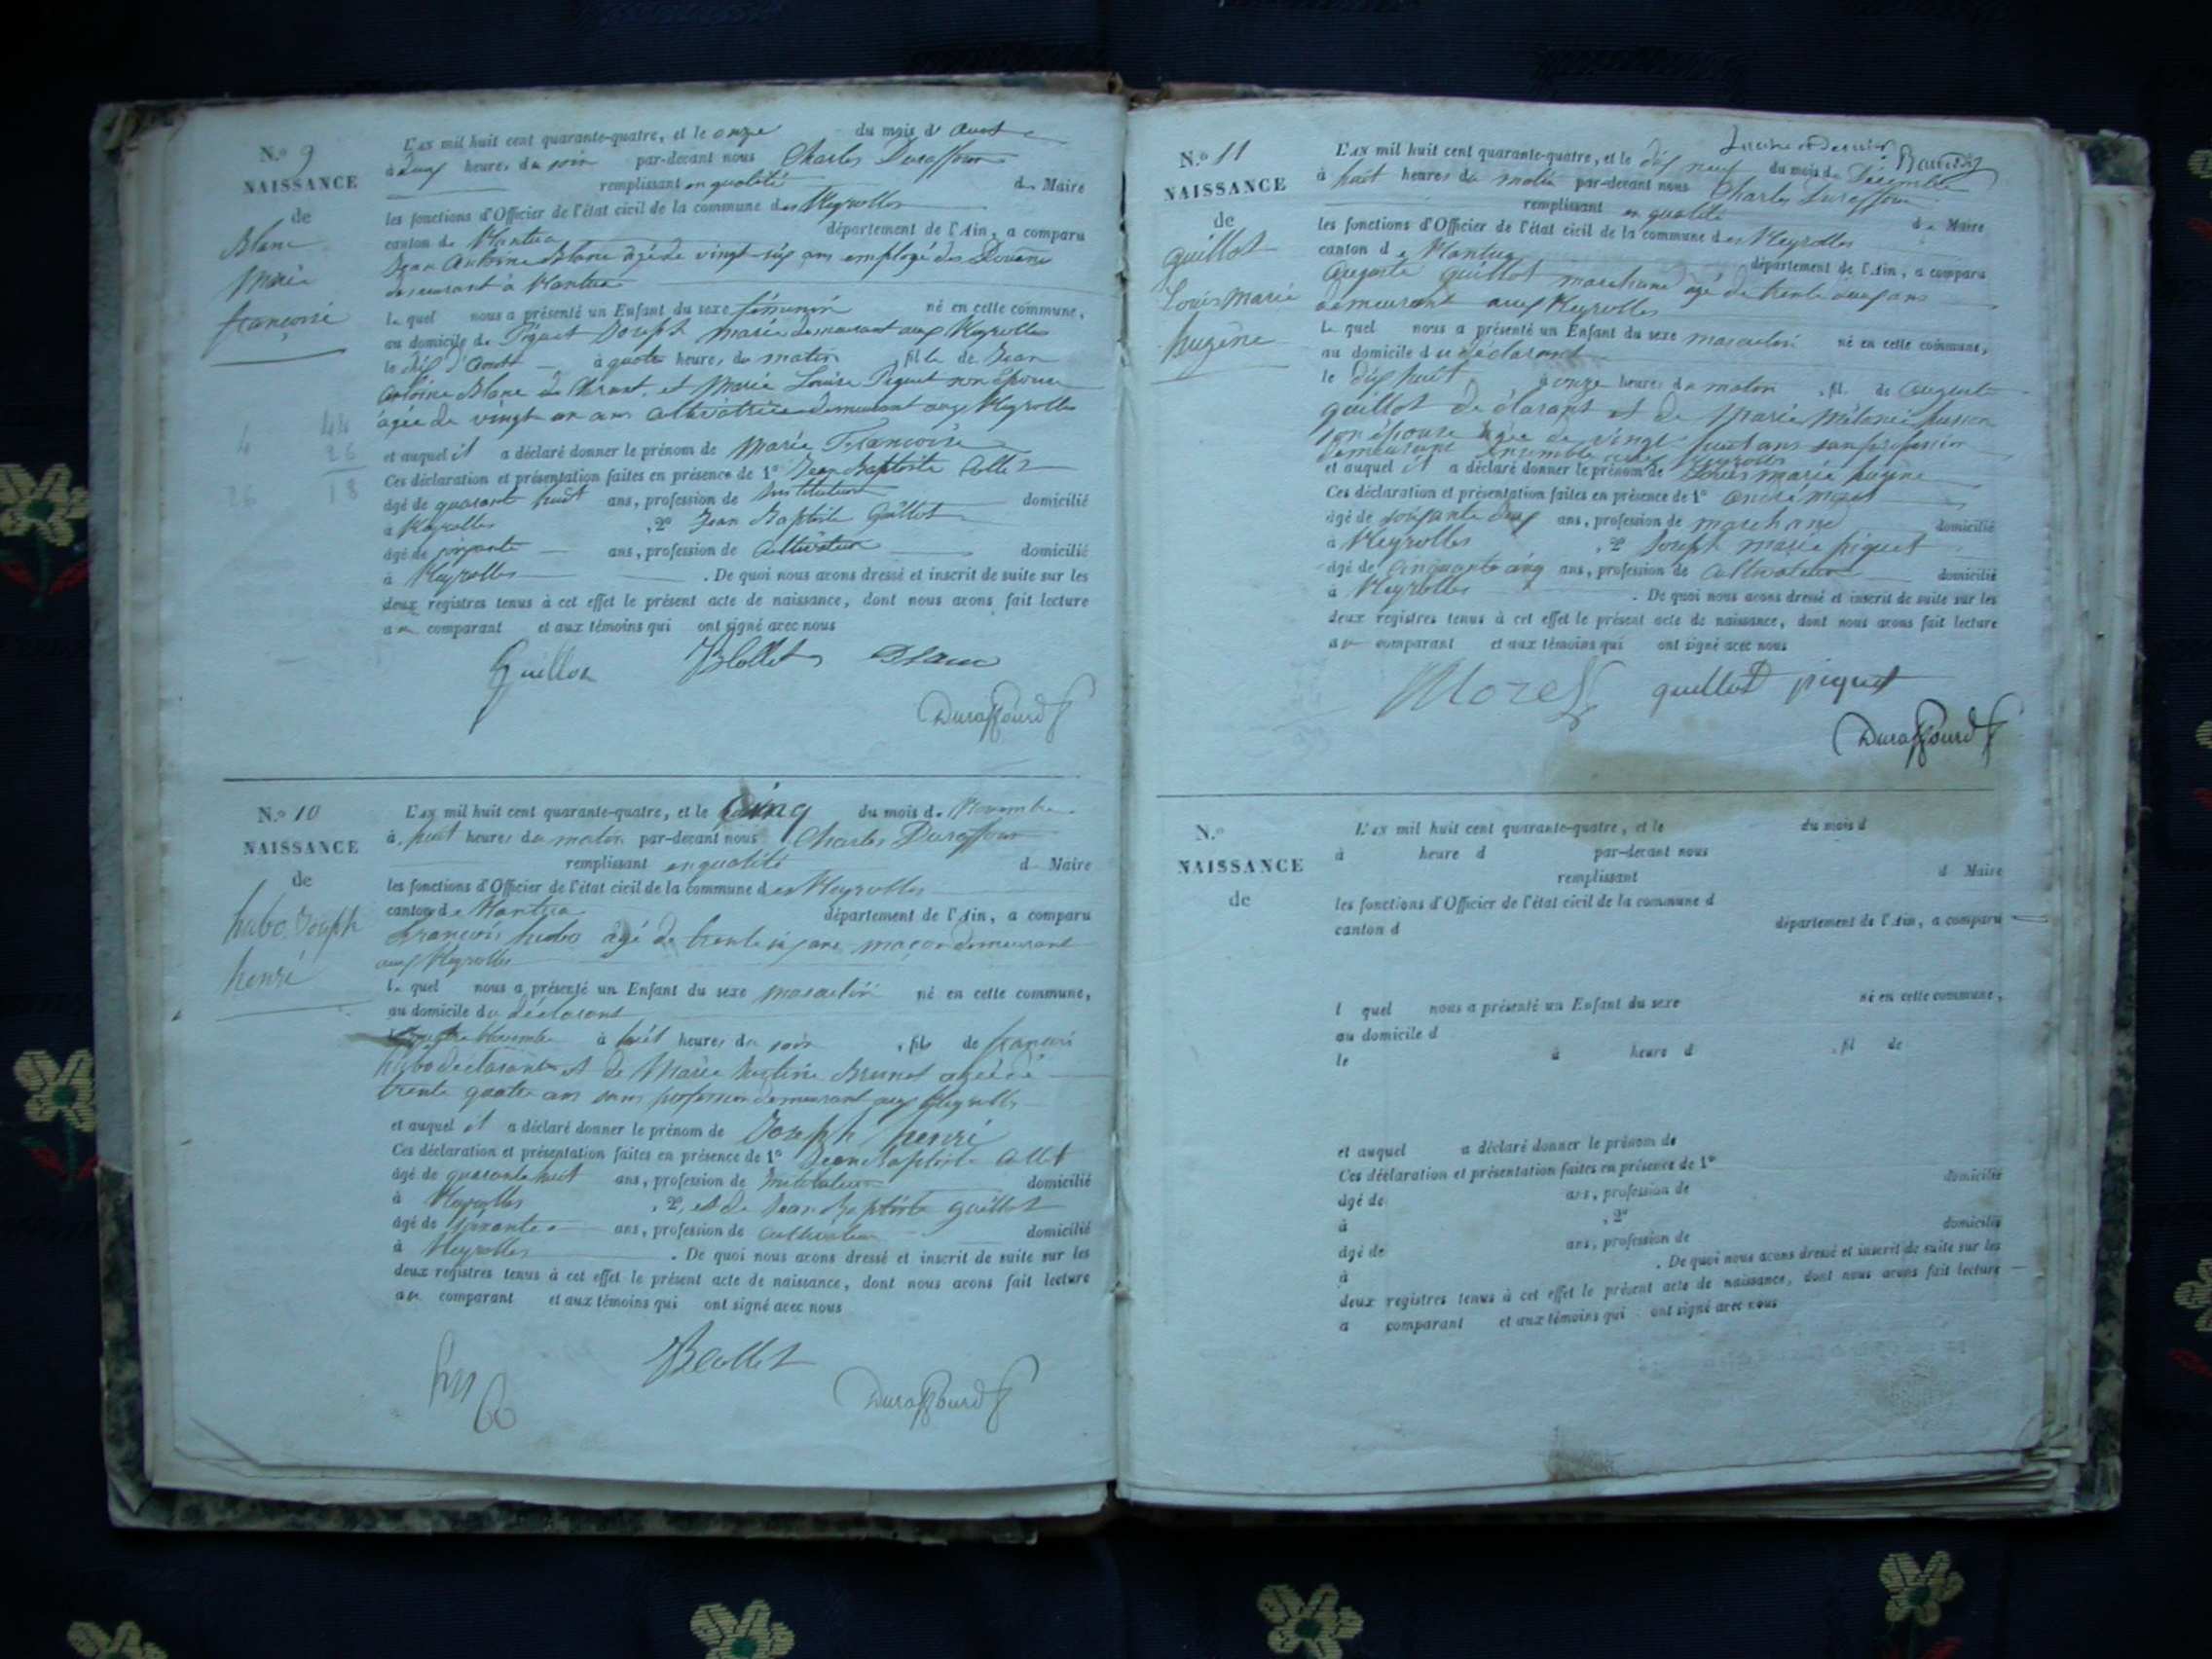 N.o 9
NAISSANCE
de
Blanc
Marie
francoise
L'an mil huit cent quarante-quatre, et le onze du mois d'Aout
à deux heures du soir par-devant nous Charles Duraffour
remplissant en qualité de Maire
les fonctions d'Officier de l'état civil de la commune des Neyrolles
canton de Nantua département de l'Ain, a comparu
Jean Antoine Blanc âgé de vingt-six ans employé des Douane
demeurant à Nantua
le quel nous a présenté un Enfant du sexe féminin né en cette commune,
au domicile de Piquet Joseph Marie demeurant aux Neyrolles
le dix d'Aout à quatre heures du matin, fille de Jean
Antoine Blanc et Marie Louise Piquet son épouse
âgée de vingt un ans cultivatrice demeurant aux Neyrolles
et auquel il a déclaré donner le prénom de Marie Francoise
Ces déclaration et présentation faites en présence de 1º Jean Baptiste Collet
âgé de quarante huit ans, profession de Instituteur domicilié
à Neyrolles, 2º Jean Baptiste Guillot
âgé de soixante ans, profession de Cultivateur domicilié
à Neyrolles. De quoi nous avons dressé et inscrit de suite sur les
deux registres tenus à cet effet le présent acte de naissance, dont nous avons fait lecture
au comparant et aux témoins qui ont signé avec nous
44
4 26
26 18
Guillot JBCollet Blanc
Duraffourd
N.o 10
NAISSANCE
de
hubo Joseph
henri
L'an mil huit cent quarante-quatre, et le Cinq du mois de Novembre
à huit heures du matin par-devant nous Charles Duraffour
remplissant en qualité de Maire
les fonctions d'Officier de l'état civil de la commune des Neyrolles
canton de Nantua département de l'Ain, a comparu
francois hubo agé de trente six ans maçon demeurant
aux Neyrolles
le quel nous a présenté un Enfant du sexe masculin né en cette commune,
au domicile du déclarant
Novembre à huit heures du soir, fils de francois
hubo déclarant et de Marie Brunet agée de
trente quatre ans sans profession demeurant aux Neyrolles
et auquel il a déclaré donner le prénom de Joseph henri
Ces déclaration et présentation faites en présence de 1º Jean Baptiste Collet
âgé de quarante huit ans, profession de Instituteur domicilié
à Neyrolles, 2º, et de Jean Baptiste Guillot
âgé de soixante ans, profession de Cultivateur domicilié
à Neyrolles. De quoi nous avons dressé et inscrit de suite sur les
deux registres tenus à cet effet le présent acte de naissance, dont nous avons fait lecture
au comparant et aux témoins qui ont signé avec nous
JBCollet
Duraffourd
N.o 11
NAISSANCE
de
guillot
Louis Marie
hugène
L'an mil huit cent quarante-quatre, et le dix neuf du mois de Décembre
à huit heures du matin par-devant nous Charles Duraffour
remplissant en qualité de Maire
les fonctions d'Officier de l'état civil de la commune des Neyrolles
canton de Nantua département de l'Ain, a comparu
Auguste guillot marchand agé de trente deux ans
demeurant aux Neyrolles
le quel nous a présenté un Enfant du sexe masculin né en cette commune,
au domicile du déclarant
le dix huit, à onze heures du matin, fils de Auguste
guillot déclarant et de Marie Mélanie
son épouse agée de vingt huit ans sans profession
demeurant ensemble aux Neyrolles
et auquel il a déclaré donner le prénom de Louis marie hugène
Ces déclaration et présentation faites en présence de 1º André morel
âgé de soixante deux ans, profession de marchand domicilié
à Neyrolles, 2º Joseph marie piquet
âgé de Cinquante cinq ans, profession de Cultivateur domicilié
à Neyrolles. De quoi nous avons dressé et inscrit de suite sur les
deux registres tenus à cet effet le présent acte de naissance, dont nous avons fait lecture
au comparant et aux témoins qui ont signé avec nous
Morel guillot piquet
Duraffourd
N.o
NAISSANCE
de
L'an mil huit cent quarante-quatre, et le du mois d
à heure d par-devant nous
remplissant d Maire
les fonctions d'Officier de l'état civil de la commune d
canton d département de l'Ain, a comparu
l quel nous a présenté un Enfant du sexe né en cette commune,
au domicile d
le à heure d, fil de
et auquel a déclaré donner le prénom de
Ces déclaration et présentation faites en présence de 1º
âgé de ans, profession de domicilié
à, 2º
âgé de ans, profession de domicilié
à. De quoi nous avons dressé et inscrit de suite sur les
deux registres tenus à cet effet le présent acte de naissance, dont nous avons fait lecture
a comparant et aux témoins qui ont signé avec nous